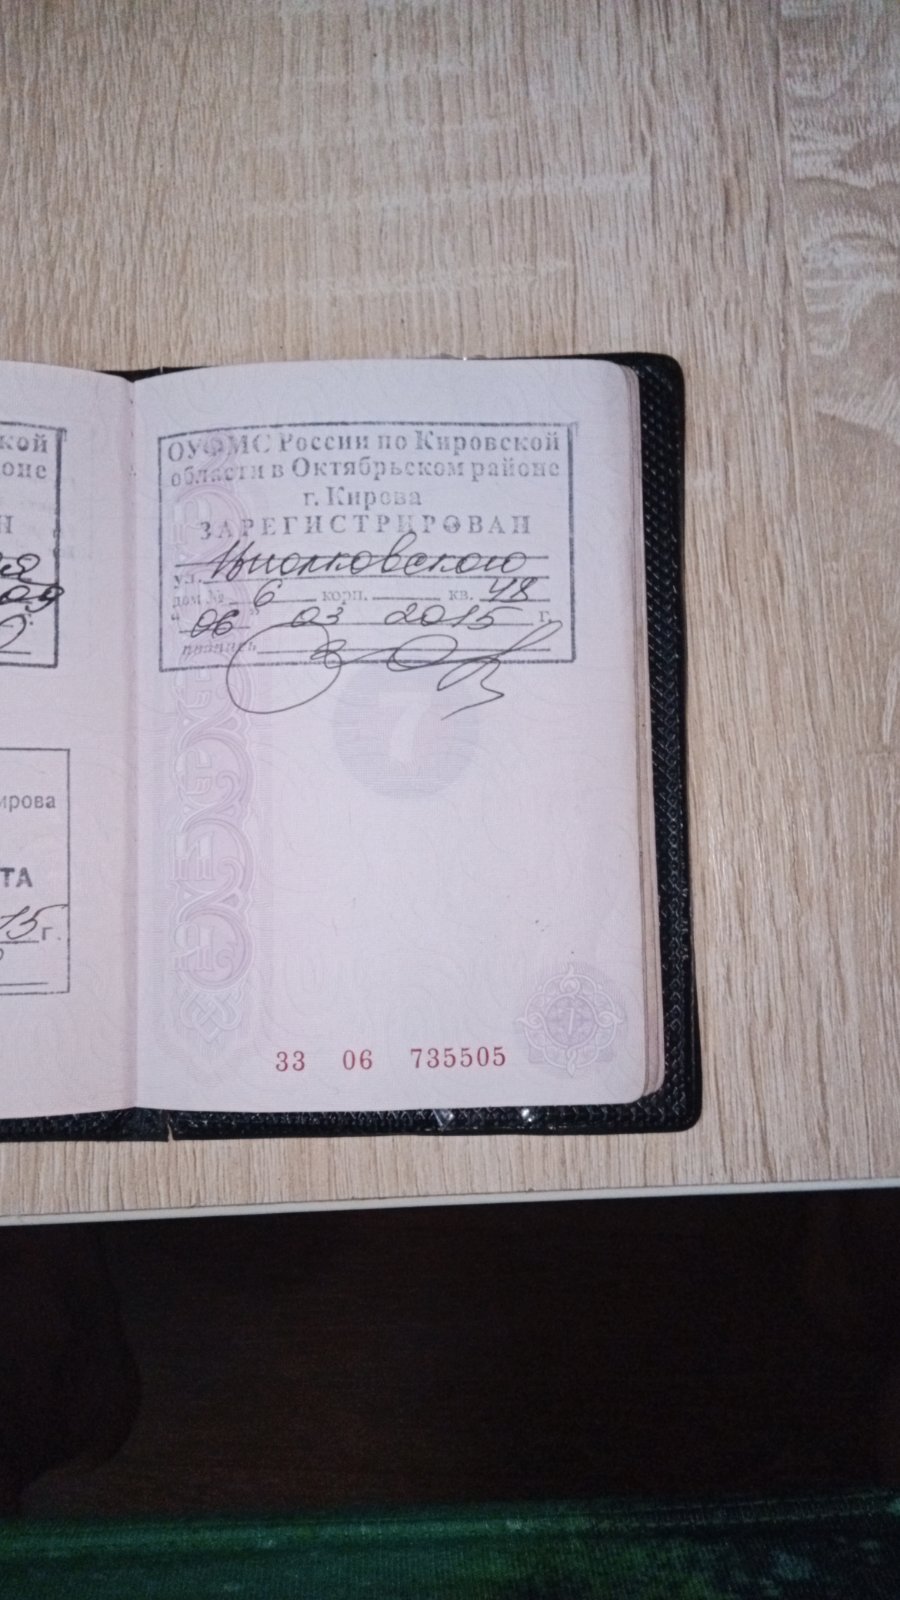 кой
оне
Н
ирова
ТА
15 г.
ОУФМС России по Кировской
области в Октябрьском районе
г. Кирова
ЗАРЕГИСТРИРОВАН
ул. Циолковского
дом № 6 корп. кв. 48
"06" 03 2015 г.
подпись
7
33 06 735505